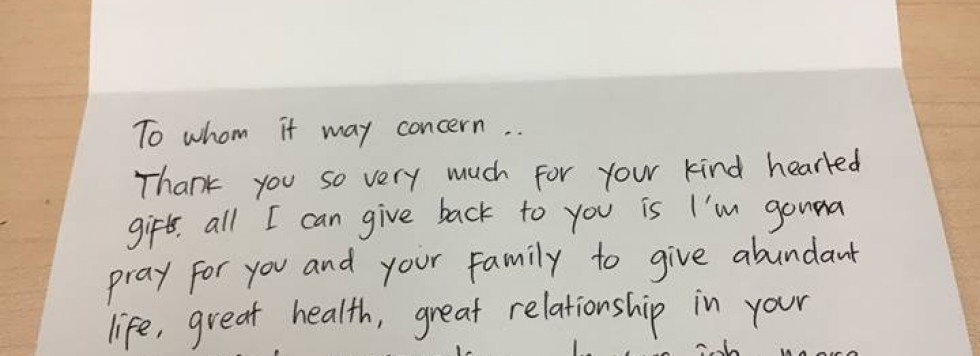 To whom it may concern ..
Thank you so very much for your kind hearted
gifts. all I can give back to you is I'm gonna
pray for you and your family to give abundant
life, great health, great relationship in your
job